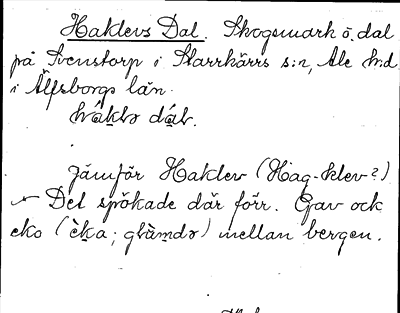 Haklevs Dal. Skogsmark o. dal
på Svenstorp i Starrkärrs s:n, Ale h:d
i Älfsborgs län.
Jämför Haklev (Hag-klev?)
Det spökade där förr. Gav ock
eko (èka; glàmdə) mellan bergen.